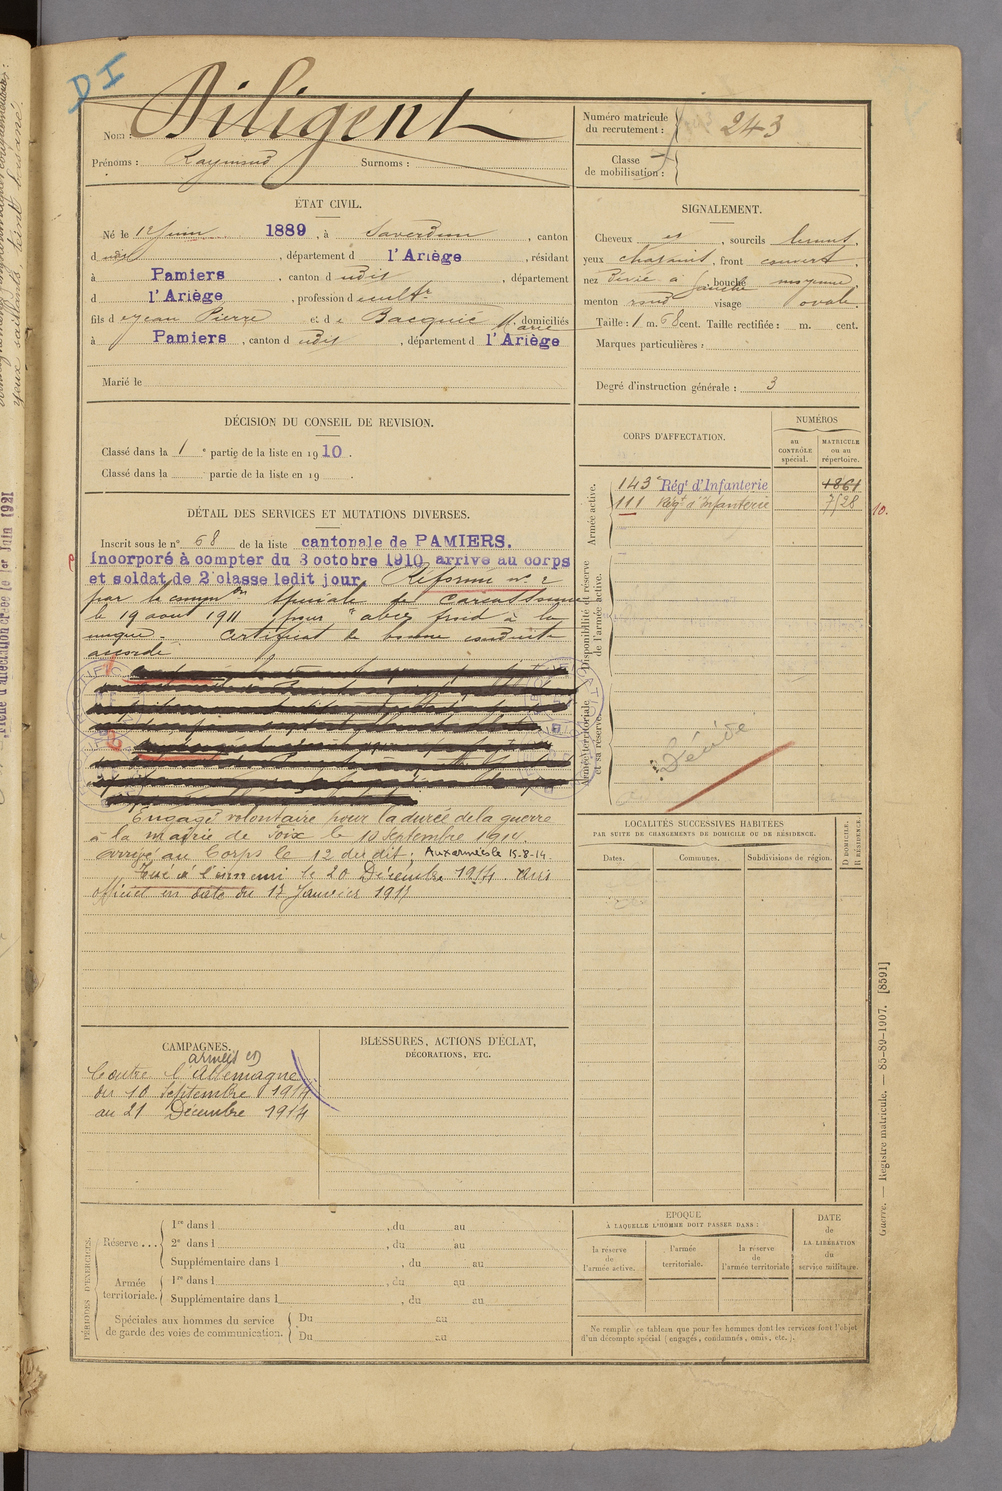 DI
Diligent
Nom :
Prénoms : Raymond Surnoms :
Numéro matricule du recrutement : 243
Classe de mobilisation :
ÉTAT CIVIL.
Né le 12 Juin 1889, à Saverdun, canton
d udit, département d l'Ariège, résidant
à Pamiers, canton d udit, département
d l'Ariège, profession d cultr
fils d e Jean Pierre et d e Bacquié Marie domiciliés
à Pamiers, canton d udit, département d l'Ariège
Marié le
SIGNALEMENT.
Cheveux et, sourcils brunt.
yeux chataint, front couvert.
nez dévié à gauche bouche moyenne
menton rond visage ovale.
Taille : 1 m. 68 cent. Taille rectifiée : m. cent.
Marques particulières :
Degré d'instruction générale : 3
DÉCISION DU CONSEIL DE REVISION.
Classé dans la 1 e partie de la liste en 1910.
Classé dans la partie de la liste en 19 .
DÉTAIL DES SERVICES ET MUTATIONS DIVERSES.
Inscrit sous le n° 68 de la liste cantonale de PAMIERS.
Incorporé à compter du 3 octobre 1910, arrivé au corps
et soldat de 2e classe ledit jour. Réformé n° 2
par la common spéciale de Carcassonne
le 19 aout 1911 pour "abcès froid à la
nuque". Certificat de bonne conduite
accordé
Engagé volontaire pour la durée de la guerre
à la mairie de Foix le 10 Septembre 1914.
Arrivé au Corps le 12 du dit, Aux armées le 15-8-14.
Tué à l'ennemi le 20 Décembre 1914 avis
officiel en date du 13 Janvier 1915
CORPS D'AFFECTATION.
NUMÉROS
au CONTRÔLE spécial.
MATRICULE ou au répertoire.
Armée active.
143e Régt d'Infanterie 1861
111 Régt d'Infanterie 7/28
10.
Disponibilité et réserve de l'armée active.
Armée territoriale et sa réserve.
Décédé
LOCALITÉS SUCCESSIVES HABITÉES
PAR SUITE DE CHANGEMENTS DE DOMICILE OU DE RÉSIDENCE.
Dates. Communes. Subdivisions de région.
D. DOMICILE. R. RÉSIDENCE.
CAMPAGNES.
armées
Contre l'Allemagne
du 10 Septembre 1914
au 21 Décembre 1914
BLESSURES, ACTIONS D'ÉCLAT,
DÉCORATIONS, ETC.
PÉRIODES D'EXERCICES.
Réserve ....
1re dans l , du au
2e dans l , du au
Supplémentaire dans l , du au
Armée territoriale.
1re dans l , du au
Supplémentaire dans l , du au
Spéciales aux hommes du service de garde des voies de communication.
Du au
Du au
EPOQUE
À LAQUELLE L'HOMME DOIT PASSER DANS :
la réserve de l'armée active.
l'armée territoriale.
la réserve de l'armée territoriale
DATE de LA LIBÉRATION du service militaire.
Ne remplir ce tableau que pour les hommes dont les services font l'objet
d'un décompte spécial (engagés, condamnés, omis, etc.).
Guerre. — Registre matricule. — 85-89-1907. [8591]